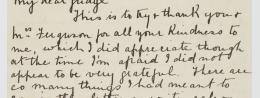 My dear Judge
This is to try & thank you &
Mrs Ferguson for all your kindness to
me, which I did appreciate though
at the time I'm afraid I did not
appear to be very grateful. There are
so many things I had meant to